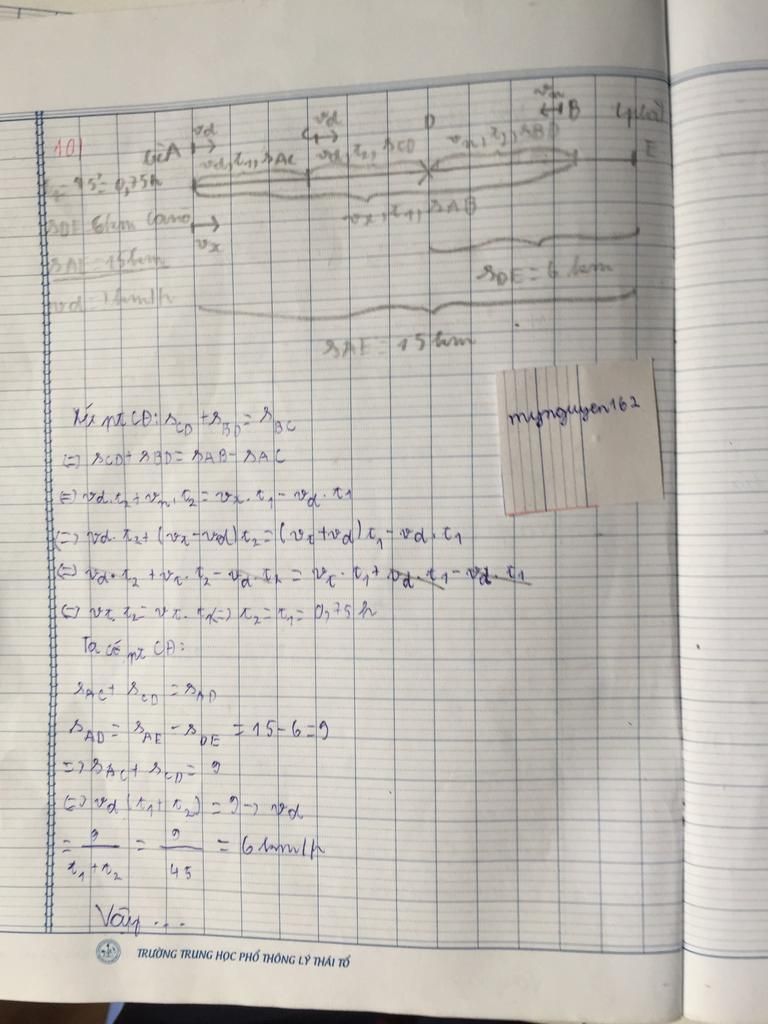 10)
vd
vd
D
B
E
vd, t1, sAC
vd, t2, sCD
t2 = 45' = 0,75h
vx, t1, sAB
sDE 6km canô
vx
sAE = 15km
sDE = 6 km
vd = ? km/h
sAE = 15km
mynguyen162
Xét pt CĐ: sCD + sBD = sBC
(=) sCD + sBD = sAB - sAC
(=) vd.t2 + vn.t2 = vx.t1 - vd.t1
(=) vd.t2 + (vx - vd)t2 = (vx + vd)t1 - vd.t1
(=) vd.t2 + vx.t2 - vd.t2 = vx.t1 + vd.t1 - vd.t1
(=) vx.t2 = vx.t1 (=) t2 = t1 = 0,75h
Ta có pt CĐ:
sAC + sCD = sAD
sAD = sAE - sDE = 15 - 6 = 9
=) sAC + sCD = 9
(=) vd (t1 + t2) = 9 -> vd
= 9/(t1 + t2) = 9/45 = 6 km/h
Vậy ...
TRƯỜNG TRUNG HỌC PHỔ THÔNG LÝ THÁI TỔ